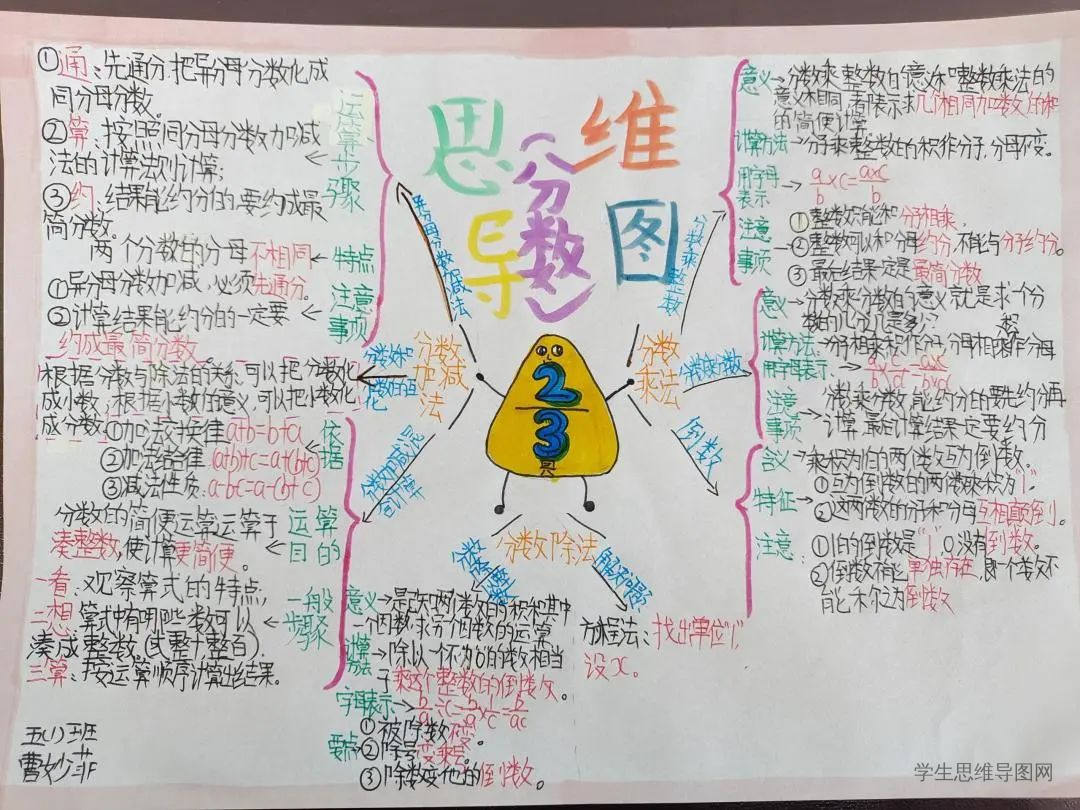 思维导图
（分数）
分数加减法
异分母分数加减法
运算步骤
①通：先通分.把异分母分数化成
同分母分数。
②算：按照同分母分数加减
法的计算法则计算；
③约、结果能约分的要约成最
简分数。
特点
两个分数的分母不相同
注意事项
①异分母分数加减，必须先通分。
②计算结果能约分的一定要
约成最简分数。
根据分数与除法的关系,可以把分数化
成小数，根据小数的意义,可以把小数化
成分数
依据
①加法交换律a+b=b+a
②加法结合律(a+b)+c=a+(b+c)
③减法性质:a-b-c=a-(b+c)
运算目的
分数的简便运算运算于
凑整数,使计算更简便。
一般步骤
一看：观察算式的特点；
二想 算式中有哪些数可以
凑成整数(或整十整百)
三算：按运算顺序计算出结果。
五(1)班
曹妙菲
分数乘法
分数乘整数
意义
分数乘整数的意义和整数乘法的
意义相同,都表示求几个相同加数的和
的简便计算
计算方法
分子乘整数的积作分子,分母不变。
用字母表示
a/b×c=a×c/b
注意事项
①整数不能和分子相乘
②整数可以和分母约分,不能与分子约分。
③最后结果一定是最简分数
意义
分数乘分数的意义就是求一个分
数的几分几是多少；
计算方法
分子相乘积作分子,分母相乘积作分母
用字母表示
注意事项
分数乘分数,能约分的要先约分再
计算,最后计算结果一定要约分
倒数
意义
乘积为1的两个数互为倒数。
特征
①互为倒数的两个数乘积为"1"。
②这两个数的分子和分母互相颠倒.
注意：
①1的倒数是"1",0没有倒数。
②倒数不能单独存在,即一个数不
能称为倒数
分数除法
意义
是已知两个数的积和其中
一个因数,求另个因数的运算
计算方法
除以一个不为0的数相当
于乘这个整数的倒数。
字母表示
b/a÷c=b/a×1/c=b/ac
要点
①被除数不变。
②除号变乘号。
③除数变他的倒数。
解决问题
方程法、找出单位"1",
设x。
2
3
学生思维导图网